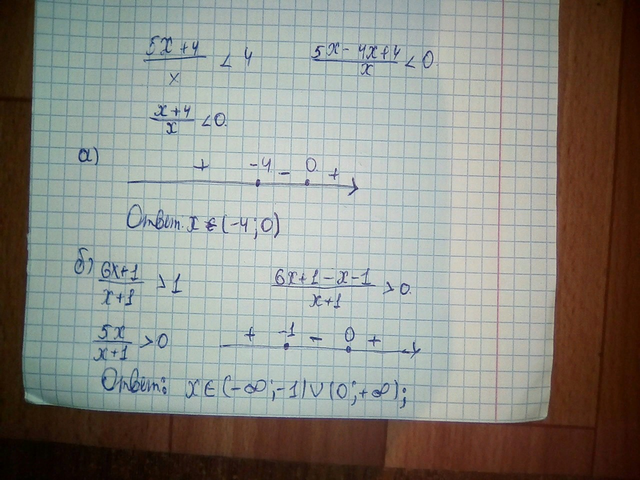 (5x+4)/x < 4 (5x-4x+4)/x < 0
(x+4)/x < 0.
а)
+ -4 - 0 +
Ответ. x ∈ (-4; 0)
б) (6x+1)/(x+1) > 1 (6x+1-x-1)/(x+1) > 0.
5x/(x+1) > 0 + -1 - 0 +
Ответ: x ∈ (-∞; -1) ∪ (0; +∞);